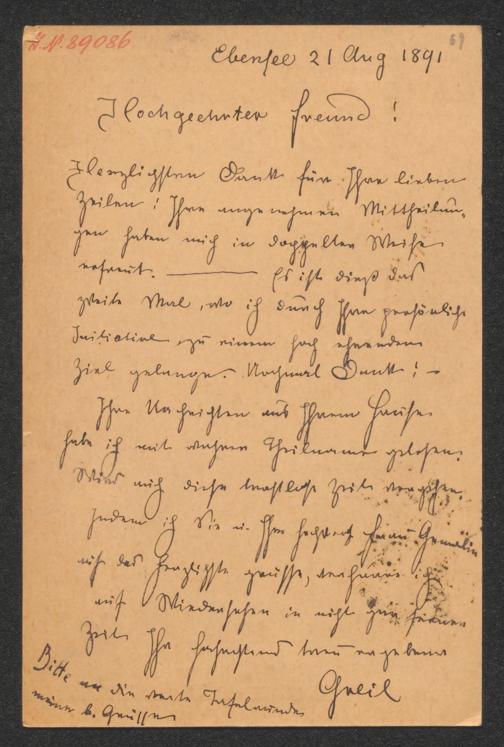 I.N. 89086
69
Ebensee 21 Aug 1891
Hochgeehrter Freund!
Herzlichsten Dank für Ihre lieben
Zeilen! Ihre angenehmen Mittheilun-
gen haben mich in doppelter Weise
erfreut. — Es ist dieß das
zweite Mal, wo ich durch Ihre persönliche
Initiative zu einem hoch ehrenden
Ziel gelange. Nochmal Dank! –
Ihre Nachrichten aus Ihrem Hause
habe ich mit wahrer Theilname gelesen.
Wird auch diese trostlose Zeit vergehen.
Indem ich Sie u. Ihre hochver. Frau Gemalin
auf das herzlichste grüsse, verharre ich
auf Wiedersehen in nicht gar ferner
Zeit Ihr hochachtend treu ergebener
Greil
Bitte an die werte Tafelrunde
meine b. Grüsse